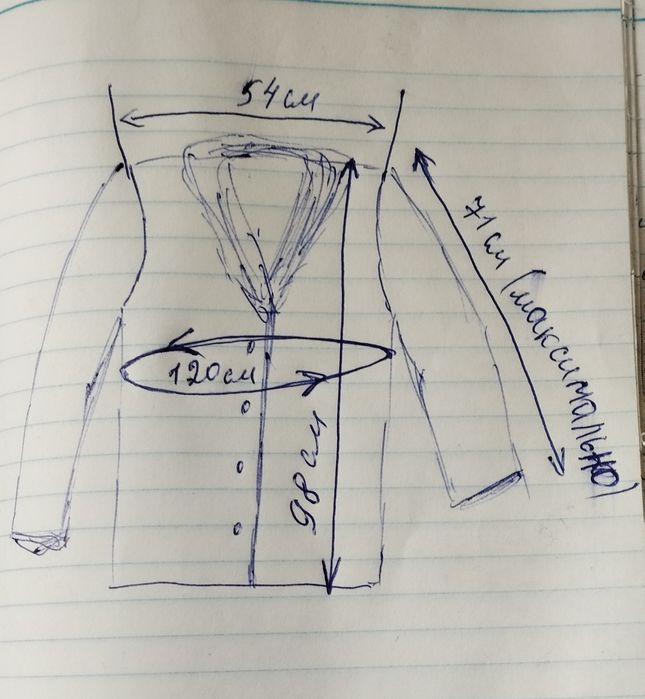 54 см
71 см (максимально)
120 см
98 см